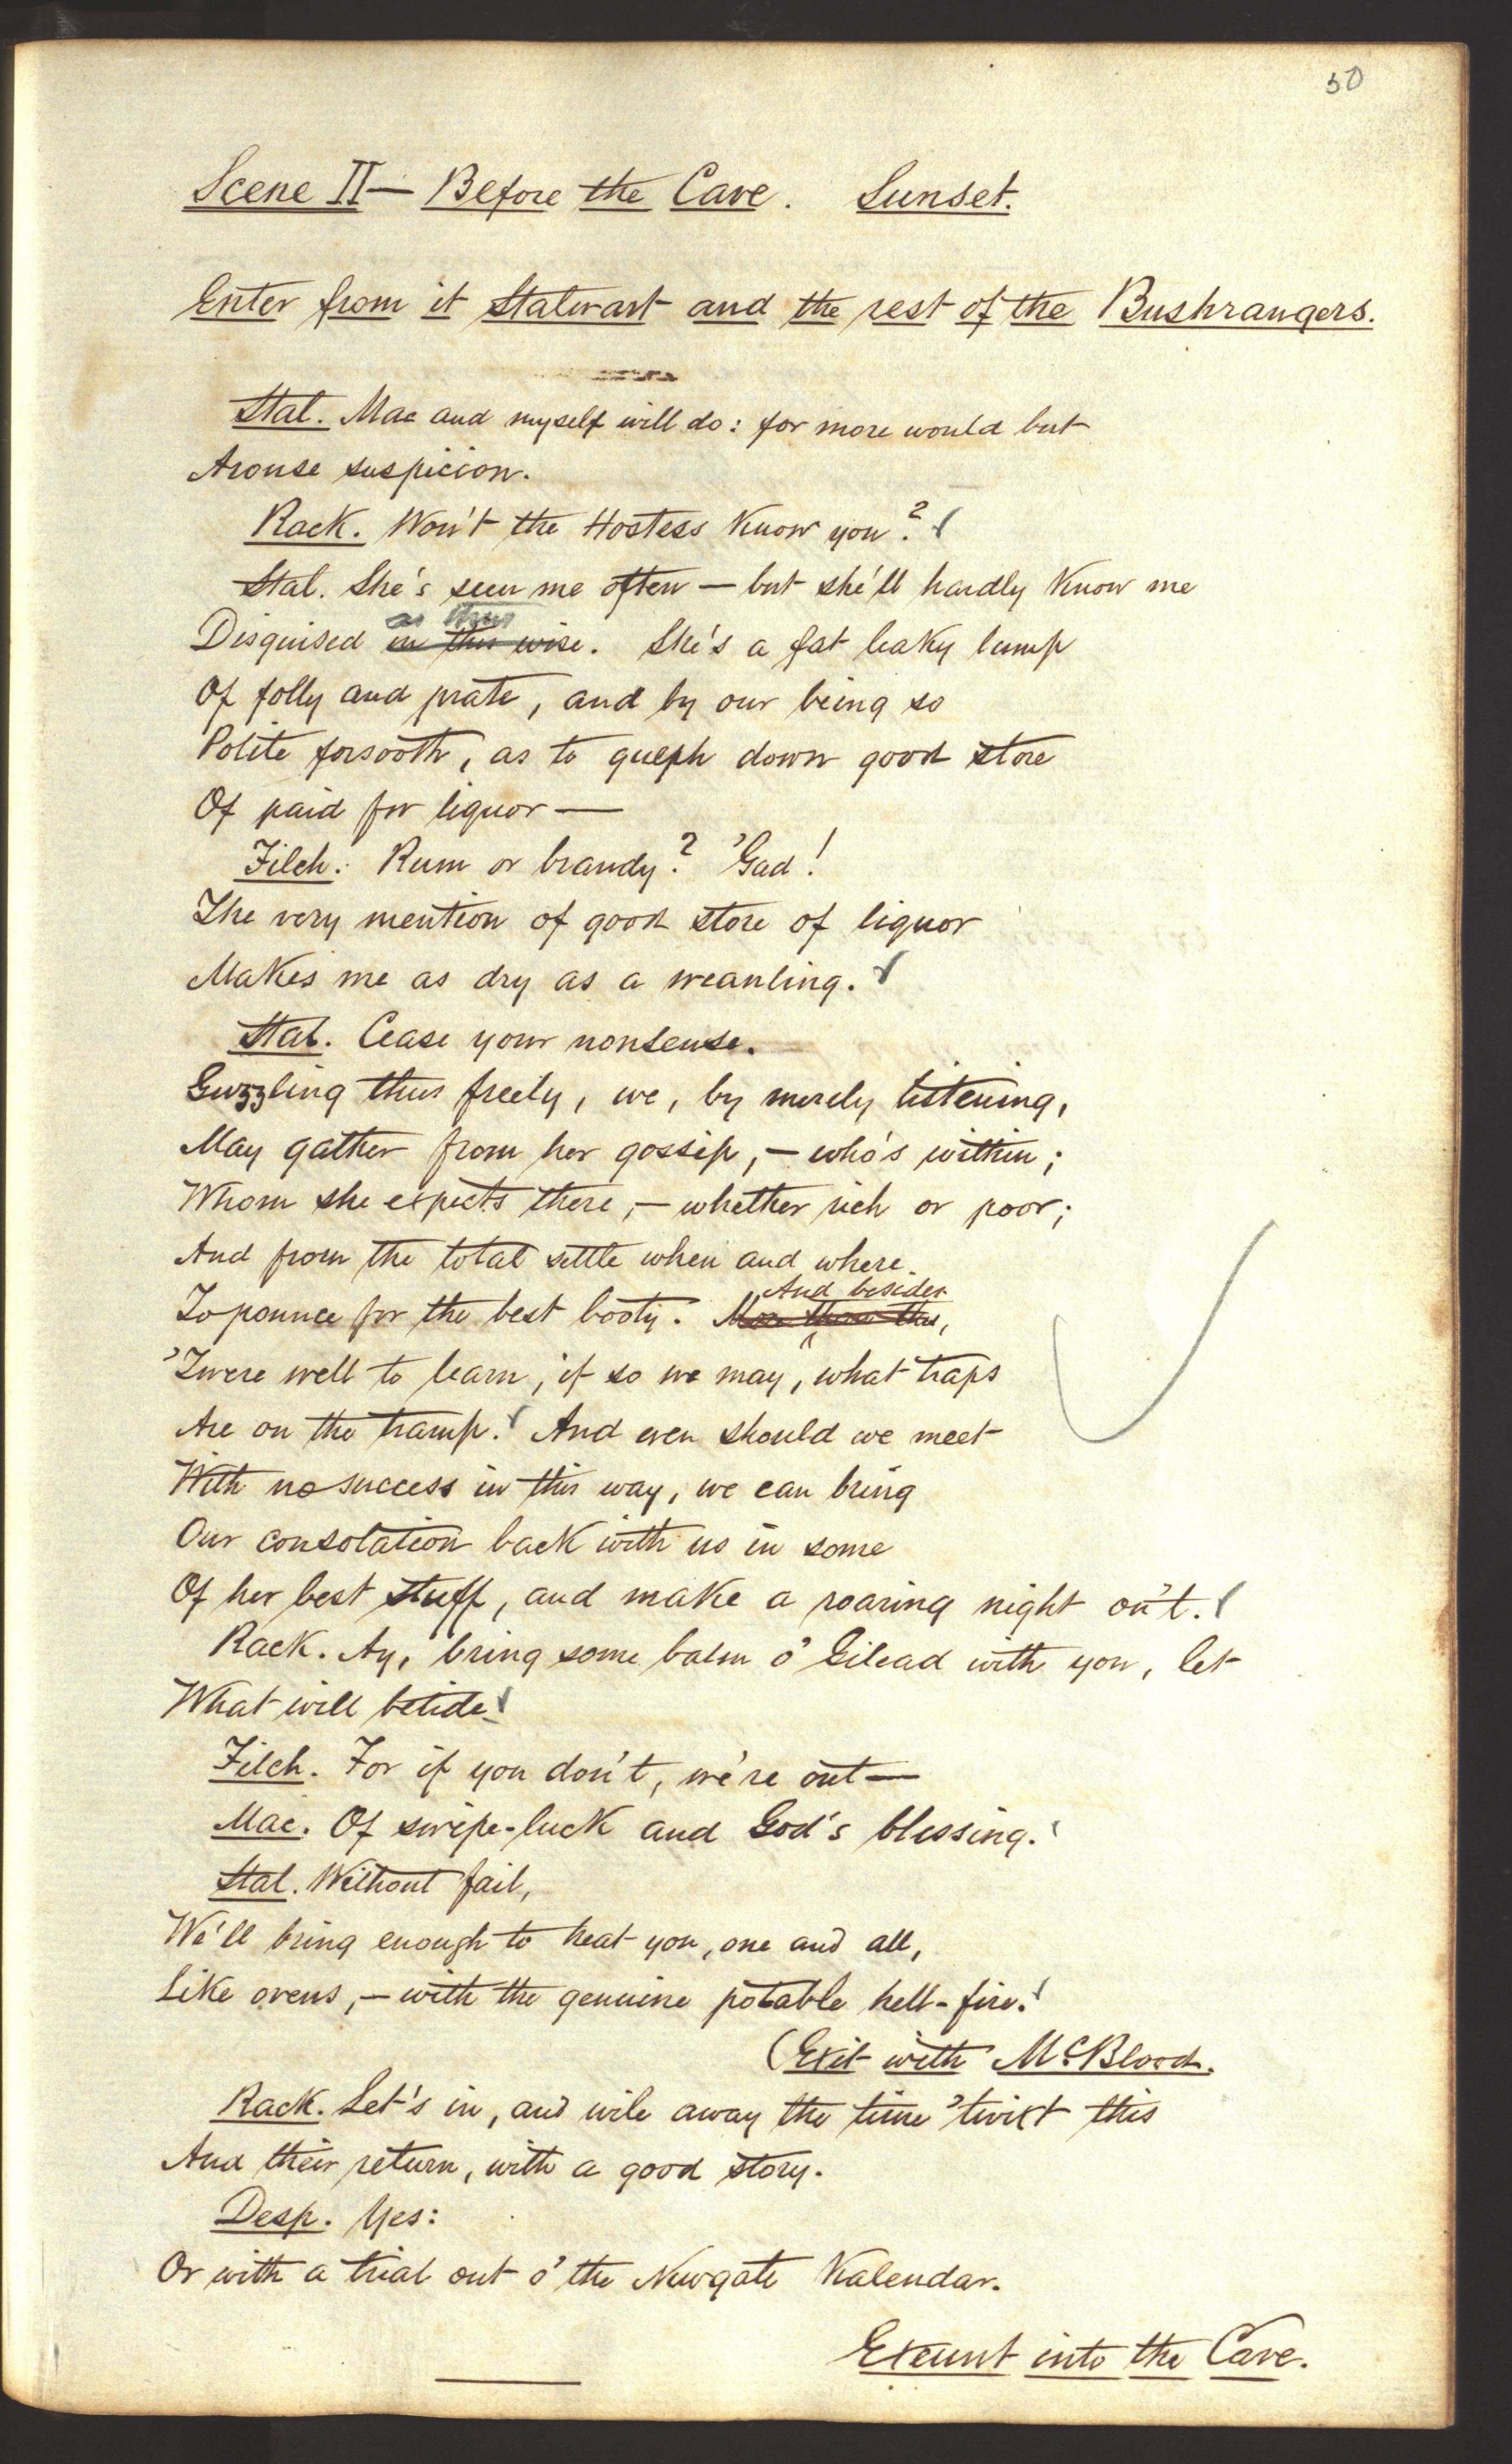 50
Scene II — Before the Cave. Sunset.
Enter from it Stalwart and the rest of the Bushrangers.
Stal. Mac and myself will do: for more would but
Arouse suspicion.
Rack. Won't the Hostess know you?
Stal. She's seen me often — but she'll hardly know me
as thus
Disguised in this wise. She's a fat leaky lump
Of folly and prate, and by our being so
Polite forsooth, as to guelph down good store
Of paid for liquor —
Filch. Rum or brandy? 'Gad!
The very mention of good store of liquor
Makes me as dry as a weanling.
Stal. Cease your nonsense.
Guzzling thus freely, we, by merely listening,
May gather from her gossip, — who's within;
Whom she expects there, — whether rich or poor;
And from the total settle when and where
And besides
To pounce for the best booty. More than this,
'Twere well to learn, if so we may, what traps
Are on the tramp. And even should we meet
With no success in this way, we can bring
Our consolation back with us in some
Of her best stuff, and make a roaring night on't.
Rack. Ay, bring some balm o' Gilead with you, let
What will betide.
Filch. For if you don't, we're out —
Mac. Of swipe-luck and God's blessing.
Stal. Without fail,
We'll bring enough to heat you, one and all,
Like ovens, — with the genuine potable hell-fire.
(Exit with McBlood.
Rack. Let's in, and wile away the time 'twixt this
And their return, with a good story.
Desp. Yes:
Or with a trial out o' the Newgate Kalendar.
Exeunt into the Cave.